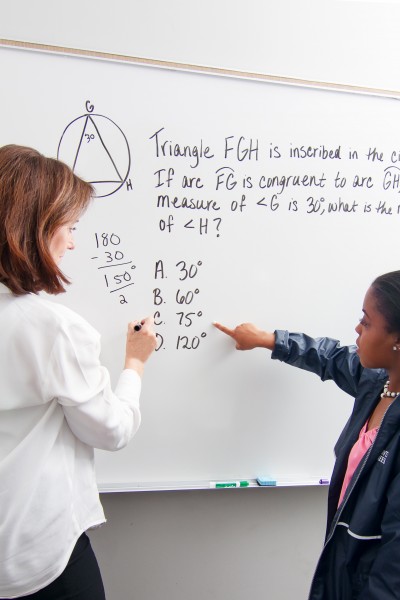 G
30
H
Triangle FGH is inscribed in the ci
If arc FG is congruent to arc GH,
measure of <G is 30°, what is the
of <H?
180
- 30
150°
2
A. 30°
B. 60°
C. 75°
D. 120°